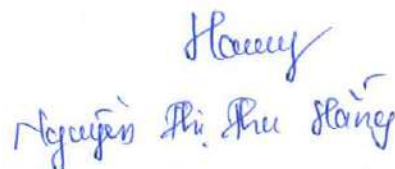 Nguyễn Thị Thu Hằng